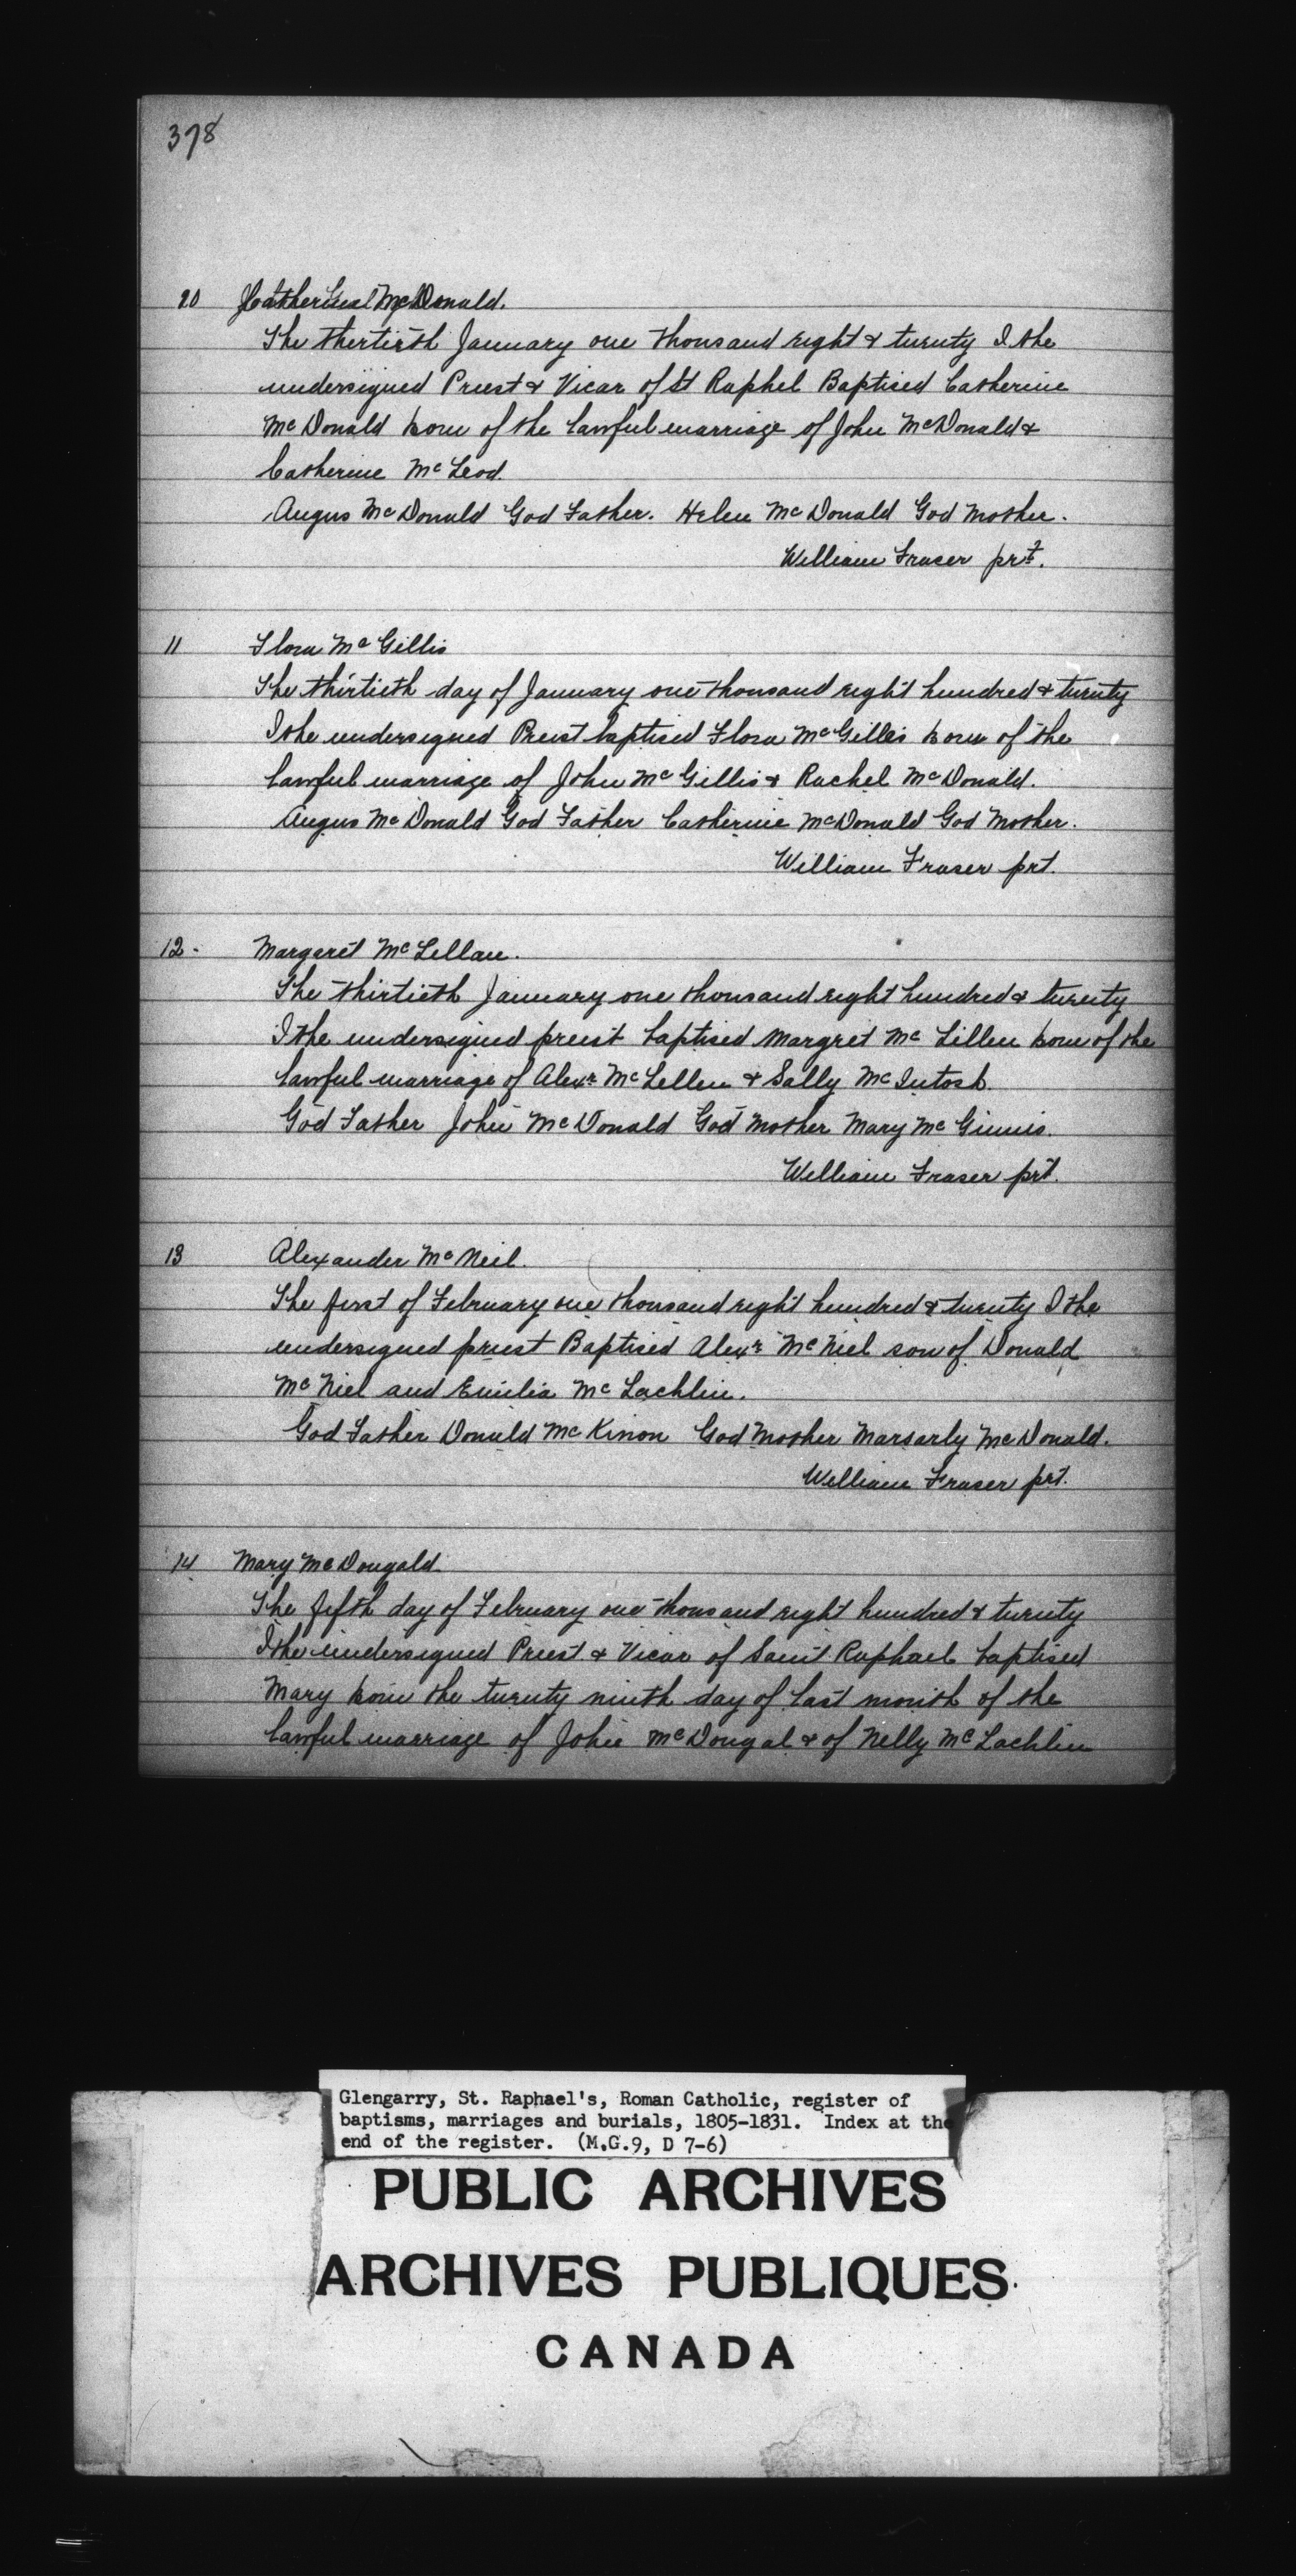 378
10 Catherine McDonald.
The thertieth January one thousand eight & twenty I the
undersigned Priest & Vicar of St Raphel Baptised Catherine
McDonald born of the lawful marriage of John McDonald &
Catherine McLeod.
Angus McDonald God Father. Helen McDonald God Mother.
William Fraser prt.
11 Flora McGillis
The thirtieth day of January one thousand eight hundred & twenty
I the undersigned Preist baptised Flora McGillis born of the
lawful marriage of John McGillis & Rachel McDonald.
Angus McDonald God Father Catherine McDonald God Mother.
William Fraser prt.
12 - Margaret McLellan.
The thirtieth January one thousand eight hundred & twenty
I the undersigned preist baptised Margret Mc Lillen born of the
lawful marriage of Alexr McLellen & Sally McIntosh
God Father John McDonald God Mother Mary McGinnis.
William Fraser prt.
13 Alexander McNeil.
The first of February one thousand eight hundred & twenty I the
undersigned priest Baptised Alexr McNiel son of Donald
McNiel and Emilia McLachlin.
God Father Donald McKinon God Mother Marsarly McDonald.
William Fraser prt.
14 Mary McDougald
The fifth day of February one thousand eight hundred & twenty
I the undersigned Priest & Vicar of Saint Raphael baptised
Mary born the twenty ninth day of last month of the
lawful marriage of John McDougal & of Nelly McLachlin
Glengarry, St. Raphael's, Roman Catholic, register of
baptisms, marriages and burials, 1805-1831. Index at the
end of the register. (M.G.9, D 7-6)
PUBLIC ARCHIVES
ARCHIVES PUBLIQUES
CANADA